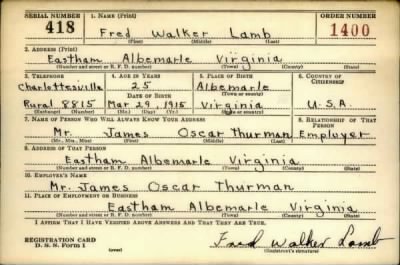 SERIAL NUMBER 1. NAME (Print) ORDER NUMBER
418 Fred Walker Lamb 1400
(First) (Middle) (Last)
2. ADDRESS (Print)
Eastham Albemarle Virginia
(Number and street or R. F. D. number) (Town) (County) (State)
3. TELEPHONE 4. AGE IN YEARS 5. PLACE OF BIRTH 6. COUNTRY OF CITIZENSHIP
Charlottesville 25 Albemarle
DATE OF BIRTH (Town or county)
Rural 8815 Mar 29, 1915 Virginia U.S.A.
(Exchange) (Number) (Mo.) (Day) (Yr.) (State or country)
7. NAME OF PERSON WHO WILL ALWAYS KNOW YOUR ADDRESS 8. RELATIONSHIP OF THAT PERSON
Mr. James Oscar Thurman Employer
(Mr., Mrs., Miss) (First) (Middle) (Last)
9. ADDRESS OF THAT PERSON
Eastham Albemarle Virginia
(Number and street or R. F. D. number) (Town) (County) (State)
10. EMPLOYER'S NAME
Mr. James Oscar Thurman
11. PLACE OF EMPLOYMENT OR BUSINESS
Eastham Albemarle Virginia
(Number and street or R. F. D. number) (Town) (County) (State)
I AFFIRM THAT I HAVE VERIFIED ABOVE ANSWERS AND THAT THEY ARE TRUE.
REGISTRATION CARD Fred Walker Lamb
D. S. S. Form 1 (over) (Registrant's signature)